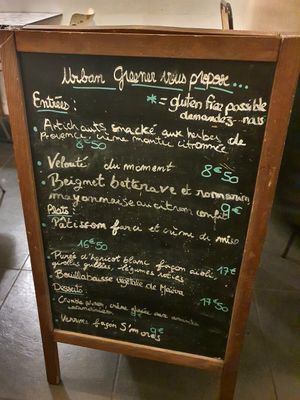 Urban Greener vous propose...
Entrées :
* = gluten free possible
demandez nous
• Artichauts snacké aux herbes de
Provence, crème montée citronnée
8€50
• Velouté du moment 8€50
• Beignet betterave et romarin
mayonnaise au citron confit 9€
Plats :
• Patisson farci et crème du miso
16€50
• Purée d'haricot blanc façon aïoli,
girolles grillées, légumes rotis 17€
• Bouillabaisse végétale de
Desserts 17€50
• crème glacée aux
9€
• Verrine façon S'mores